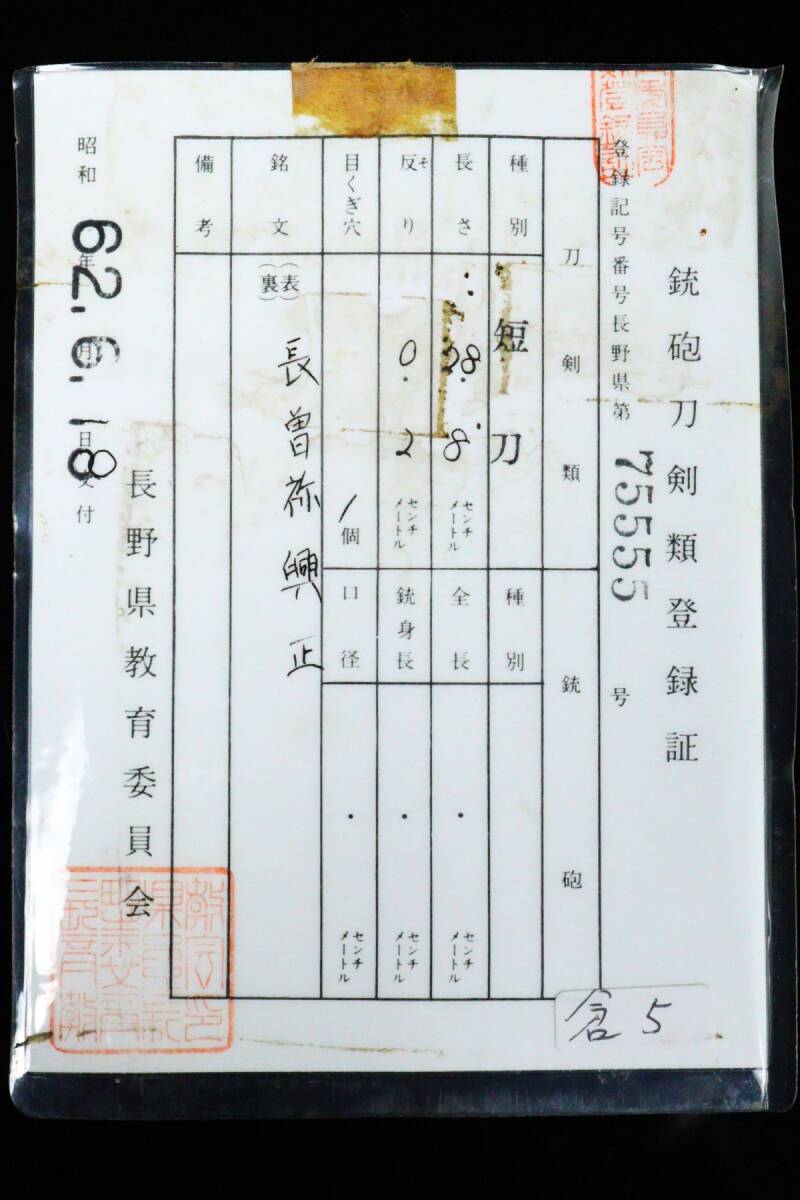 銃砲刀剣類登録証
登録記号番号長野県第 75555 号
刀剣類
種別 短刀
長さ 28.8 センチメートル
反り そ 0.2 センチメートル
目くぎ穴 1個
銘文 (表)(裏) 長曽祢興正
備考
銃砲
種別
全長 ・ センチメートル
銃身長 ・ センチメートル
口径 ・ センチメートル
昭和 62年 6.月 18日交付
長野県教育委員会
倉5